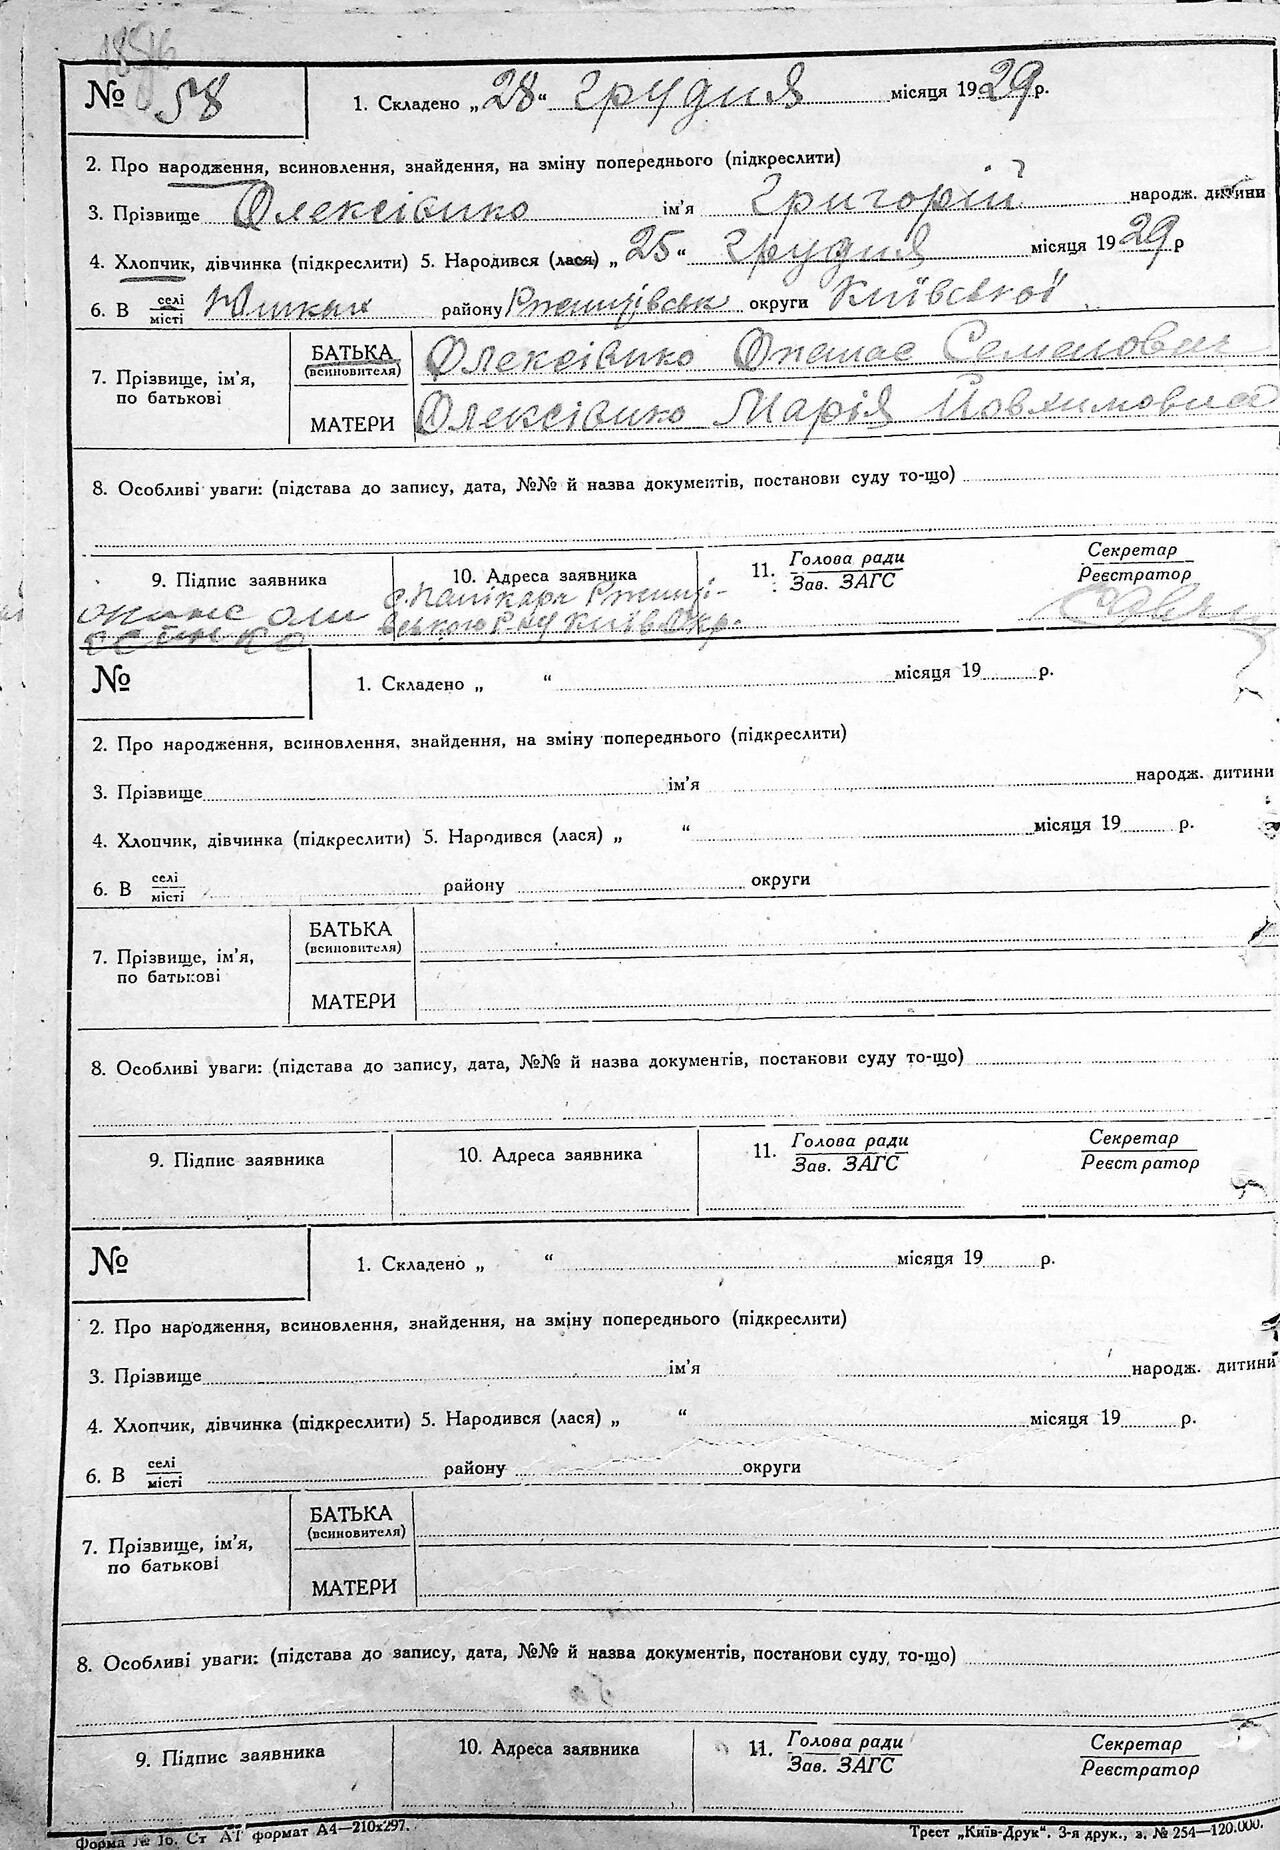 № 58
1. Складено „28“ грудня місяця 1929 р.
2. Про народження, всиновлення, знайдення, на зміну попереднього (підкреслити)
3. Прізвище Олексієнко ім’я Григорій народж. дитини
4. Хлопчик, дівчинка (підкреслити) 5. Народився (лася) „25“ грудня місяця 1929 р
6. В селі місті району округи Київської
7. Прізвище, ім’я, по батькові
БАТЬКА (всиновителя) Олексієнко Опанас Семенович
МАТЕРИ Олексієнко Марія
8. Особливі уваги: (підстава до запису, дата, №№ й назва документів, постанови суду то-що)
9. Підпис заявника
10. Адреса заявника
11. Голова ради
Зав. ЗАГС
Секретар
Реєстратор
№
1. Складено „ “ місяця 19 р.
2. Про народження, всиновлення, знайдення, на зміну попереднього (підкреслити)
3. Прізвище ім’я народж. дитини
4. Хлопчик, дівчинка (підкреслити) 5. Народився (лася) „ “ місяця 19 р.
6. В селі місті району округи
7. Прізвище, ім’я, по батькові
БАТЬКА (всиновителя)
МАТЕРИ
8. Особливі уваги: (підстава до запису, дата, №№ й назва документів, постанови суду то-що)
9. Підпис заявника
10. Адреса заявника
11. Голова ради
Зав. ЗАГС
Секретар
Реєстратор
№
1. Складено „ “ місяця 19 р.
2. Про народження, всиновлення, знайдення, на зміну попереднього (підкреслити)
3. Прізвище ім’я народж. дитини
4. Хлопчик, дівчинка (підкреслити) 5. Народився (лася) „ “ місяця 19 р.
6. В селі місті району округи
7. Прізвище, ім’я, по батькові
БАТЬКА (всиновителя)
МАТЕРИ
8. Особливі уваги: (підстава до запису, дата, №№ й назва документів, постанови суду то-що)
9. Підпис заявника
10. Адреса заявника
11. Голова ради
Зав. ЗАГС
Секретар
Реєстратор
Форма № 1б. Ст АТ формат А4—210х297.
Трест „Київ-Друк“. 3-я друк., з. № 254—120.000.